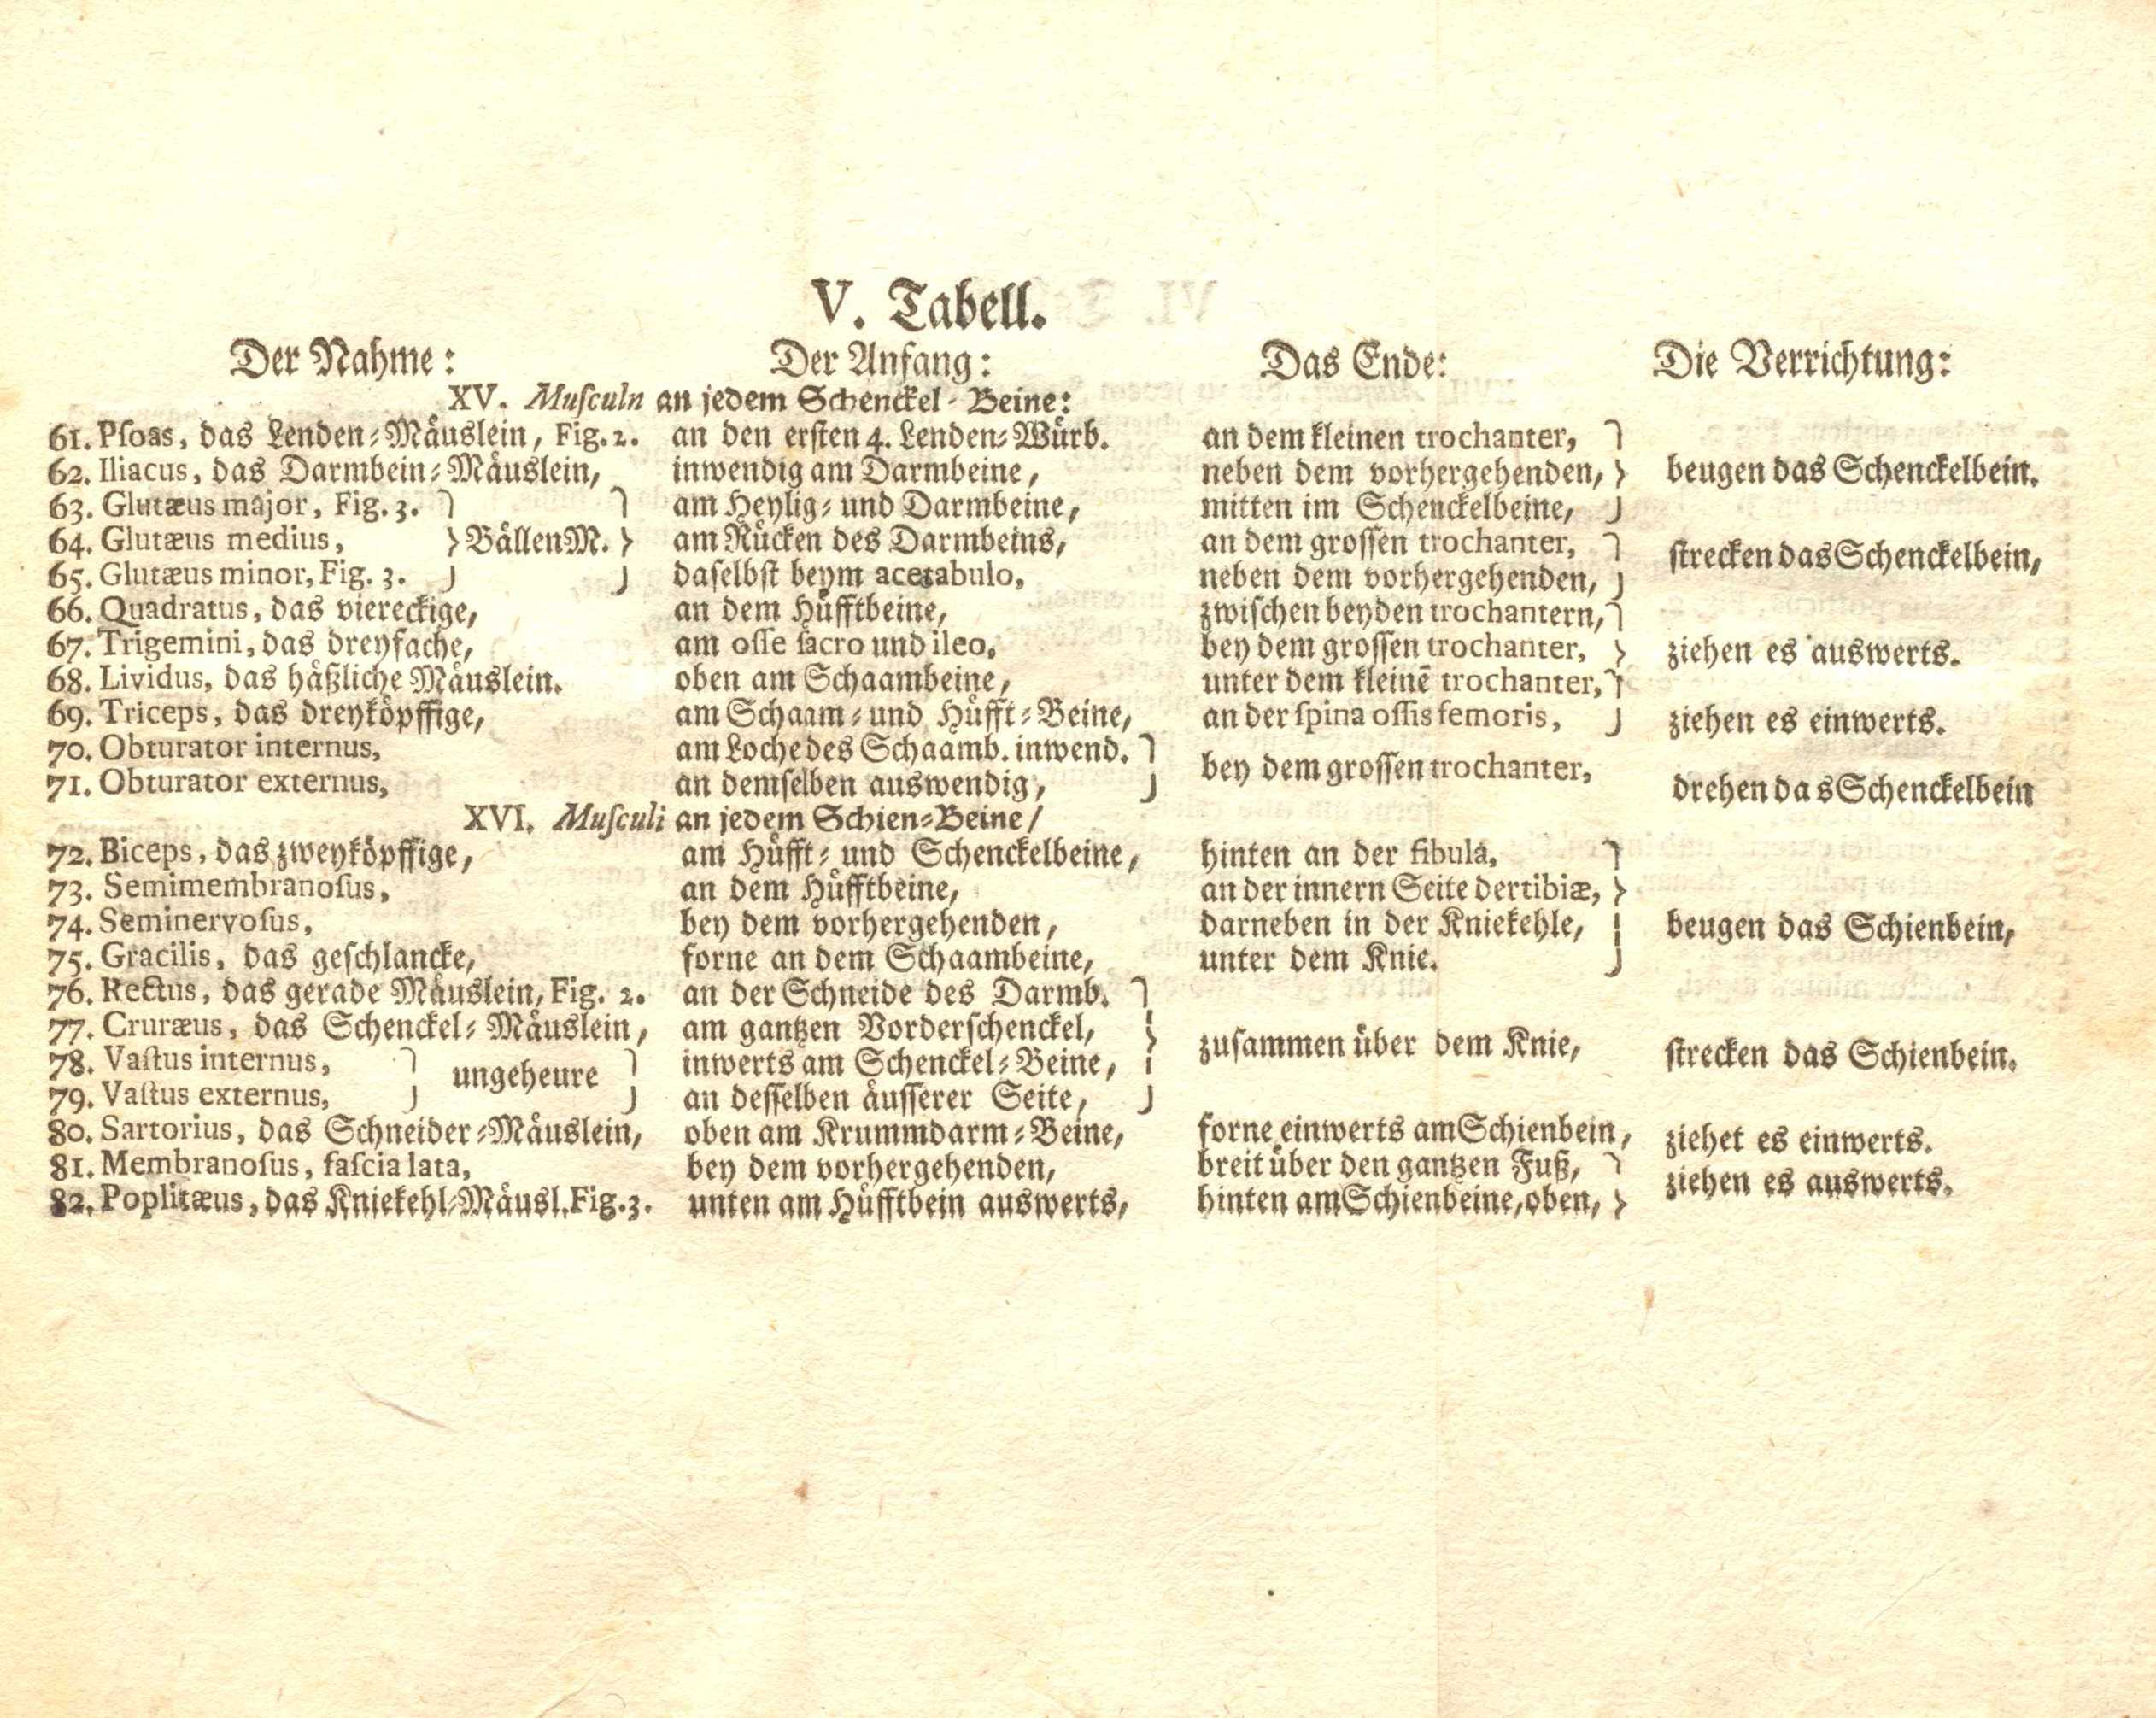 V. Tabell.
Der Nahme: Der Anfang: Das Ende: Die Verrichtung:
XV. Muſculn an jedem Schenckel-Beine:
61. Pſoas, das Lenden-Mäuslein, Fig. 2. an den erſten 4. Lenden-Würb. an dem kleinen trochanter,
62. Iliacus, das Darmbein-Mäuslein, inwendig am Darmbeine, neben dem vorhergehenden, beugen das Schenckelbein.
63. Glutæus major, Fig. 3. am Heylig- und Darmbeine, mitten im Schenckelbeine,
64. Glutæus medius, Bällen M. am Rücken des Darmbeins, an dem groſſen trochanter,
65. Glutæus minor, Fig. 3. daſelbſt beym acetabulo, neben dem vorhergehenden, ſtrecken das Schenckelbein,
66. Quadratus, das viereckige, an dem Hüfftbeine, zwiſchen beyden trochantern,
67. Trigemini, das dreyfache, am oſſe ſacro und ileo, bey dem groſſen trochanter, ziehen es auswerts.
68. Lividus, das häßliche Mäuslein. oben am Schaambeine, unter dem kleinē trochanter,
69. Triceps, das dreyköpffige, am Schaam- und Hüfft-Beine, an der ſpina oſſis femoris, ziehen es einwerts.
70. Obturator internus, am Loche des Schaamb. inwend. bey dem groſſen trochanter,
71. Obturator externus, an demſelben auswendig, drehen das Schenckelbein
XVI. Muſculi an jedem Schien-Beine/
72. Biceps, das zweyköpffige, am Hüfft- und Schenckelbeine, hinten an der fibula,
73. Semimembranoſus, an dem Hüfftbeine, an der innern Seite der tibiæ,
74. Seminervoſus, bey dem vorhergehenden, darneben in der Kniekehle, beugen das Schienbein,
75. Gracilis, das geſchlancke, forne an dem Schaambeine, unter dem Knie.
76. Rectus, das gerade Mäuslein, Fig. 2. an der Schneide des Darmb.
77. Cruræus, das Schenckel-Mäuslein, am gantzen Vorderſchenckel, zuſammen über dem Knie, ſtrecken das Schienbein.
78. Vaſtus internus, ungeheure inwerts am Schenckel-Beine,
79. Vaſtus externus, an deſſelben äuſſerer Seite,
80. Sartorius, das Schneider-Mäuslein, oben am Krummdarm-Beine, forne einwerts am Schienbein, ziehet es einwerts.
81. Membranoſus, faſcia lata, bey dem vorhergehenden, breit über den gantzen Fuß, ziehen es auswerts.
82. Poplitæus, das Kniekehl-Mäusl. Fig. 3. unten am Hüfftbein auswerts, hinten am Schienbeine, oben,